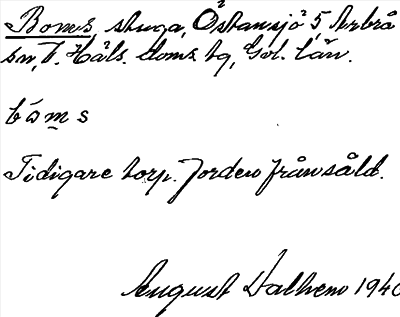 Bomes, stuga, Östansjö 5, Arbrå
sn, V. Häls. doms. tg, Gvl. län.
bóms
Tidigare torp. Jorden frånsåld.
August Dalhem 1940